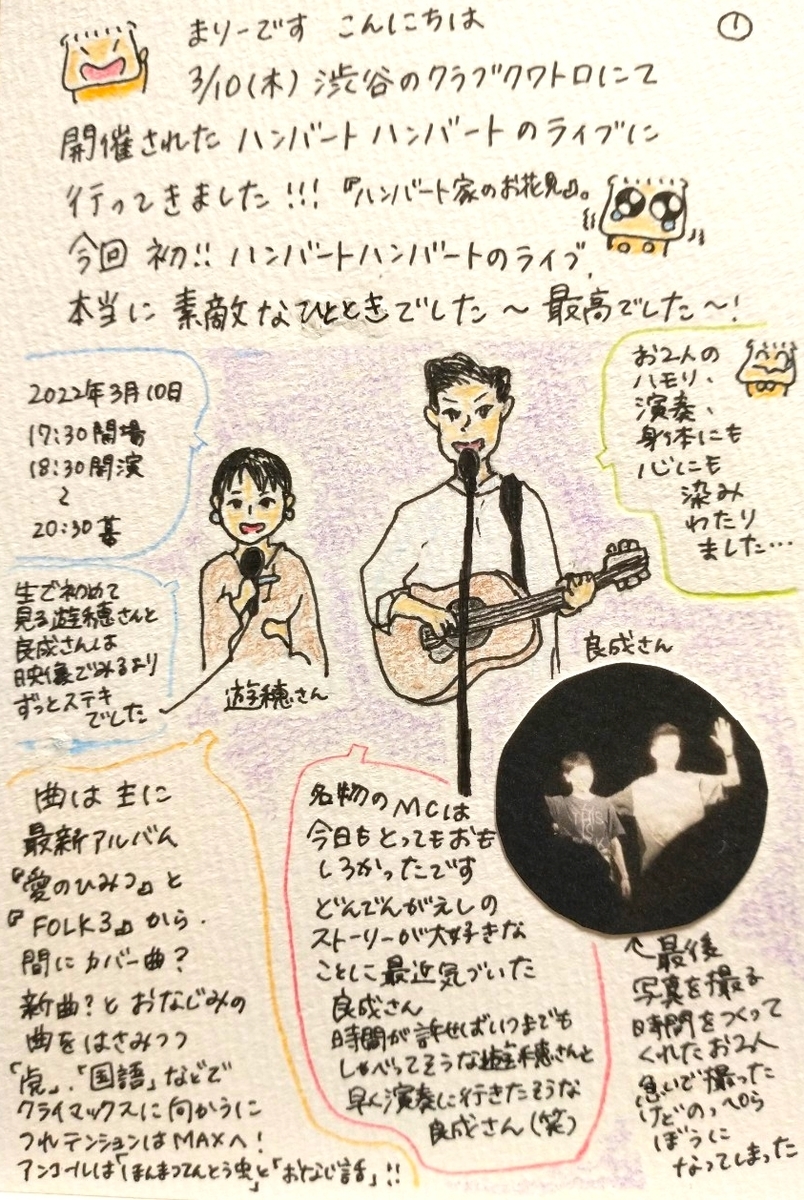 ①
まりーです こんにちは
3/10(木) 渋谷のクラブクワトロにて
開催された ハンバート ハンバート のライブに
行ってきました!!! 『ハンバート家のお花見』。
今回 初!! ハンバートハンバートのライブ、
本当に 素敵なひとときでした〜 最高でした〜!
2022年3月10日
17:30開場
18:30開演
〜
20:30幕
お2人の
ハモり、
演奏、
身体にも
心にも
染み
わたり
ました…
生で初めて
見る遊穂さんと
良成さんは
映像でみるより
ずっとステキ
でした
遊穂さん
良成さん
曲は 主に
最新アルバム
『愛のひみつ』と
『FOLK3』から.
間にカバー曲?
新曲?と おなじみの
曲をはさみつつ
「虎」.「国語」などで
クライマックスに向かうに
つれテンションはMAXへ!
アンコールは「ほんまつてんとう虫」と「おなじ話」!!
名物のMCは
今日もとってもおも
しろかったです
どんでんがえしの
ストーリーが大好きな
ことに最近気づいた
良成さん
時間が許せばいつまでも
しゃべってそうな遊穂さんと
早く演奏に行きたそうな
良成さん(笑)
↑最後
写真を撮る
時間をつくって
くれたお2人
急いで撮った
けどのっぺら
ぼうに
なってしまった